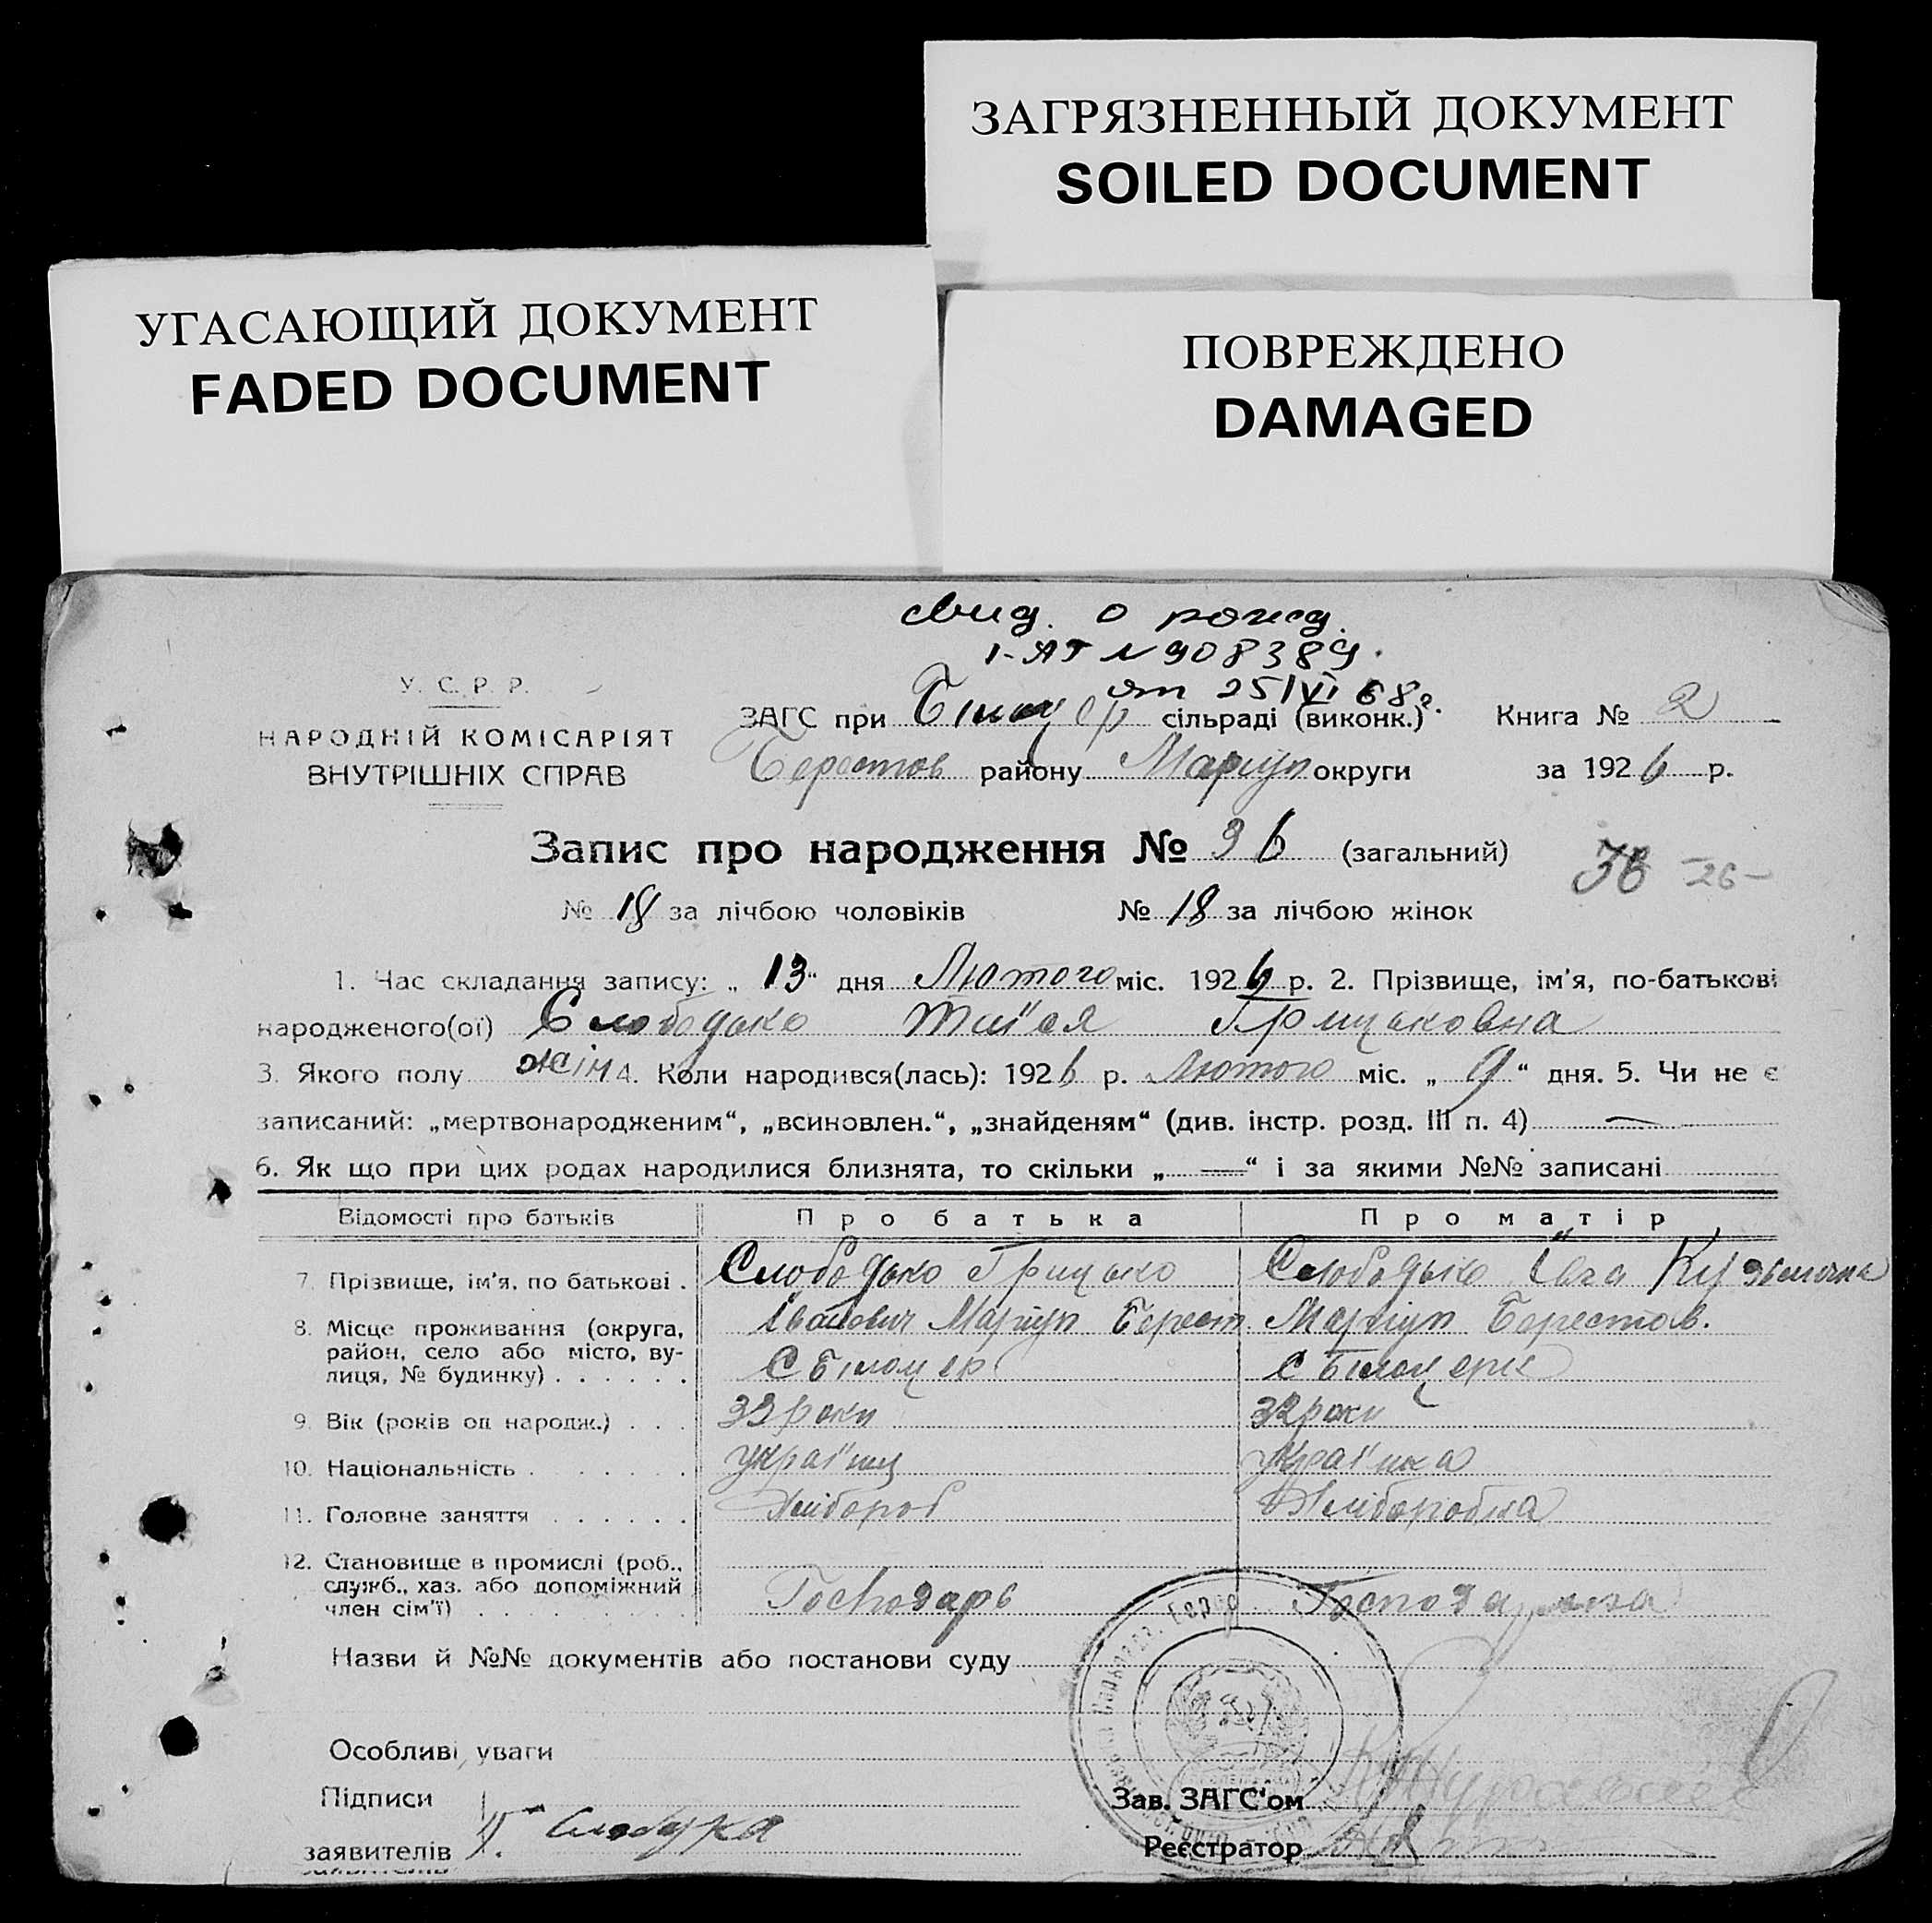 ЗАГРЯЗНЕННЫЙ ДОКУМЕНТ
SOILED DOCUMENT
УГАСАЮЩИЙ ДОКУМЕНТ
FADED DOCUMENT
ПОВРЕЖДЕНО
DAMAGED
свид. о рожд.
I-АТ № 908389.
от 25/VI 68г.
У. С. Р. Р.
НАРОДНІЙ КОМІСАРІЯТ
ВНУТРІШНІХ СПРАВ
ЗАГС при Білоцер сільраді (виконк.) Книга № 2
Берестов району Маріуп округи за 1926 р.
Запис про народження № 36 (загальний)
36 -26-
№ 18 за лічбою чоловіків № 18 за лічбою жінок
1. Час складання запису: „13“ дня Лютого міс. 1926 р. 2. Прізвище, ім'я, по-батькові
народженого(ої) Слободько Таїся Грицьковна
3. Якого полу жін 4. Коли народився(лась): 1926 р. Лютого міс. „9“ дня. 5. Чи не є
записаний: „мертвонародженим“, „всиновлен.“, „знайденям“ (див. інстр. розд. III п. 4) —
6. Як що при цих родах народилися близнята, то скільки „—“ і за якими №№ записані
Відомості про батьків Про батька Про матір
7. Прізвище, ім'я, по батькові . Слободько Грицько Слободько Ївга Кузьмочна
8. Місце проживання (округа, район, село або місто, вулиця, № будинку) . . . . . . Іванович Маріуп Берест Маріуп Берестов.
С Білоцер с Білоцерк
9. Вік (років од народж.) . . . 33 роки 32 роки
10. Національність . . . . . . українц українка
11. Головне заняття . . . . . . Хлібороб Хлібробка
12. Становище в промислі (роб., служб., хаз. або допоміжний член сім'ї) . . . . . . . . . Господарь Господарька
Назви й №№ документів або постанови суду
Особливі уваги
Підписи
заявителів Г. Слободка
Зав. ЗАГС'ом
Реєстратор